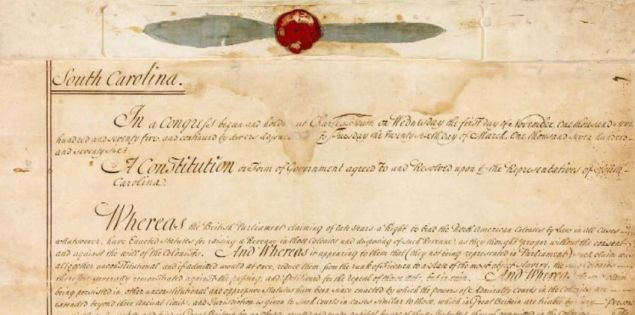 South Carolina.
In a Congress begun and holden at Charlestown on Wednesday the first day of November, One thousand seven
hundred and seventy five, and continued by divers adjournments to Tuesday the twenty sixth day of March, One thousand seven hundred
and seventy six.
A Constitution or Form of Government agreed to and Resolved upon by the Representatives of South
Carolina.
Whereas the British Parliament claiming of late years a Right to bind the North American Colonies by Laws in all Cases
whatsoever, have Enacted Statutes for raising a Revenue in those Colonies and disposing of such Revenue as they thought proper without the consent
and against the will of the Colonists. And Whereas it appearing to them that (they not being represented in Parliament) such claim was
altogether unconstitutional and if admitted would at once reduce them from the rank of Freemen to a State of the most
And Whereas
being persisted in, other unconstitutional and oppressive Statutes have been since enacted by which the powers of Admiralty Courts in the Colonies are
extended beyond their ancient limits, and Jurisdiction is given to such Courts in cases similar to those, which in Great Britain are triable by Jury